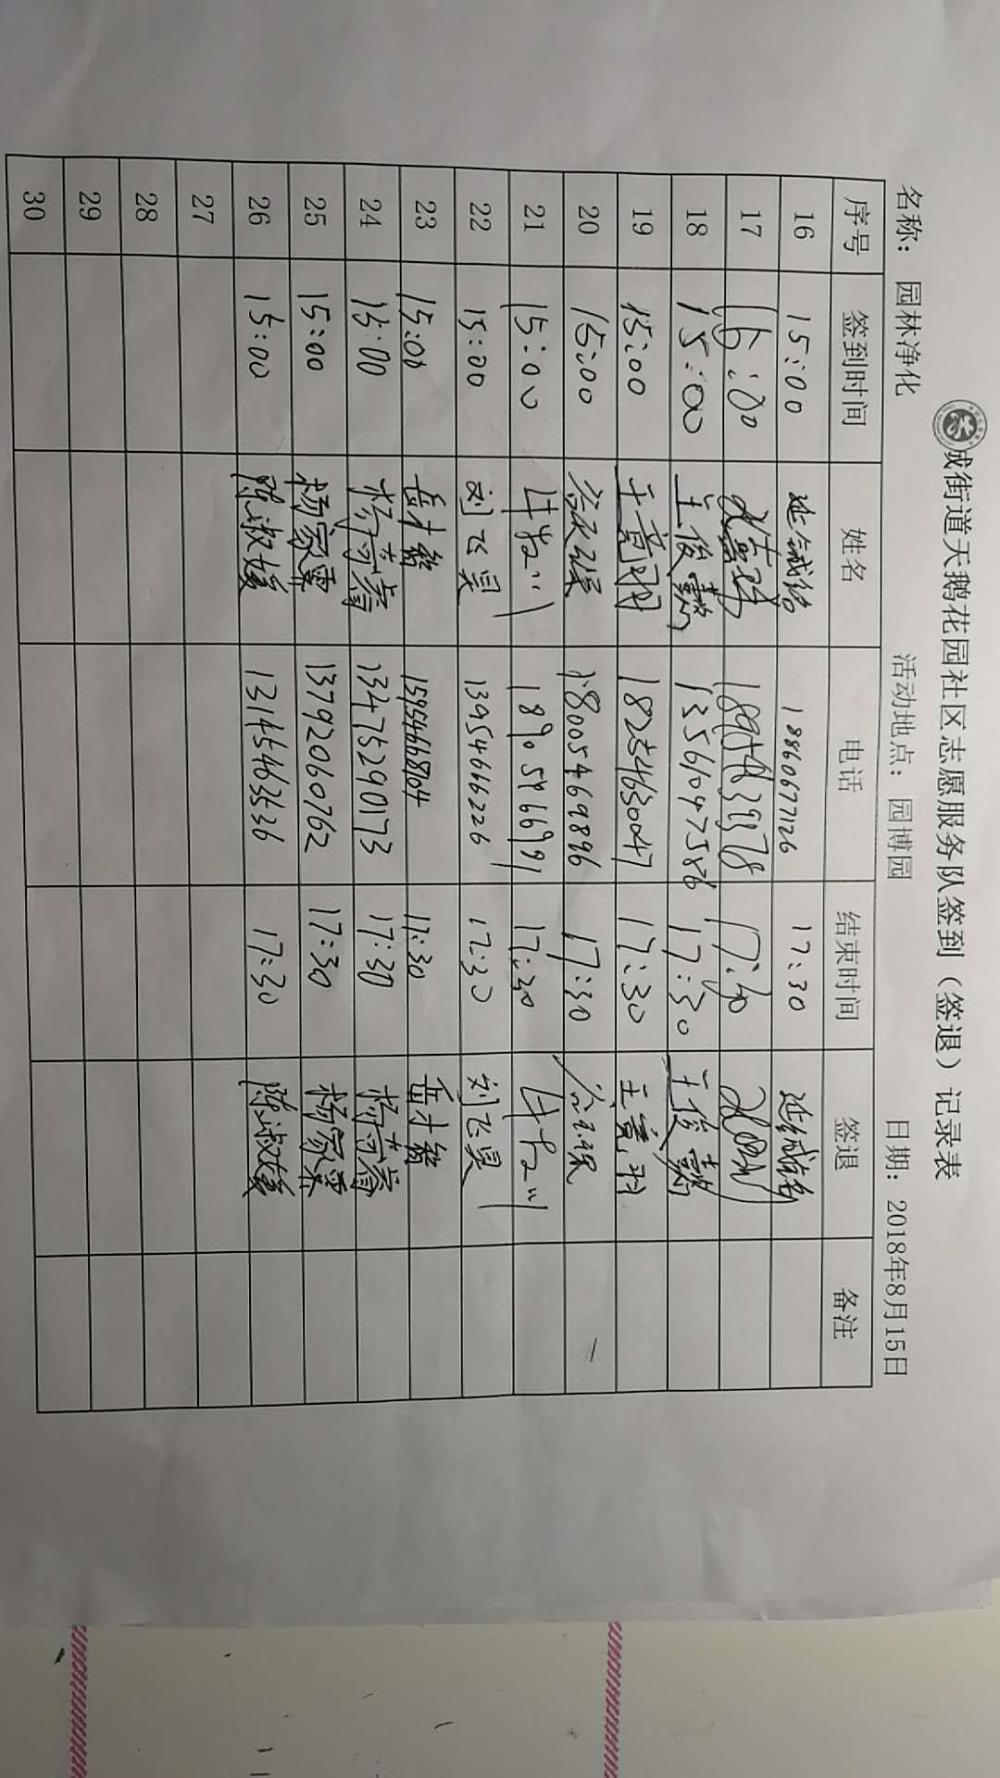 成街道天鹅花园社区志愿服务队签到（签退）记录表
名称： 园林净化 活动地点： 园博园 日期： 2018年8月15日
序号 签到时间 姓名 电话 结束时间 签退 备注
16 15:00 18860677126 17:30
17 15:00 17:30
18 15:00 王俊懿 13561047586 17:30 王俊懿
19 15:00 王竟羽 18254630047 17:30 王竟羽
20 15:00 18005469896 17:30
21 15:00 17:30
22 15:00 刘飞昊 13954666226 17:30 刘飞昊
23 15:00 岳才智 15954668704 17:30 岳才智
24 15:00 13475290173 17:30
25 15:00 杨家霖 13792060762 17:30 杨家霖
26 15:00 陈淑媛 13145463536 17:30 陈淑媛
27
28
29
30